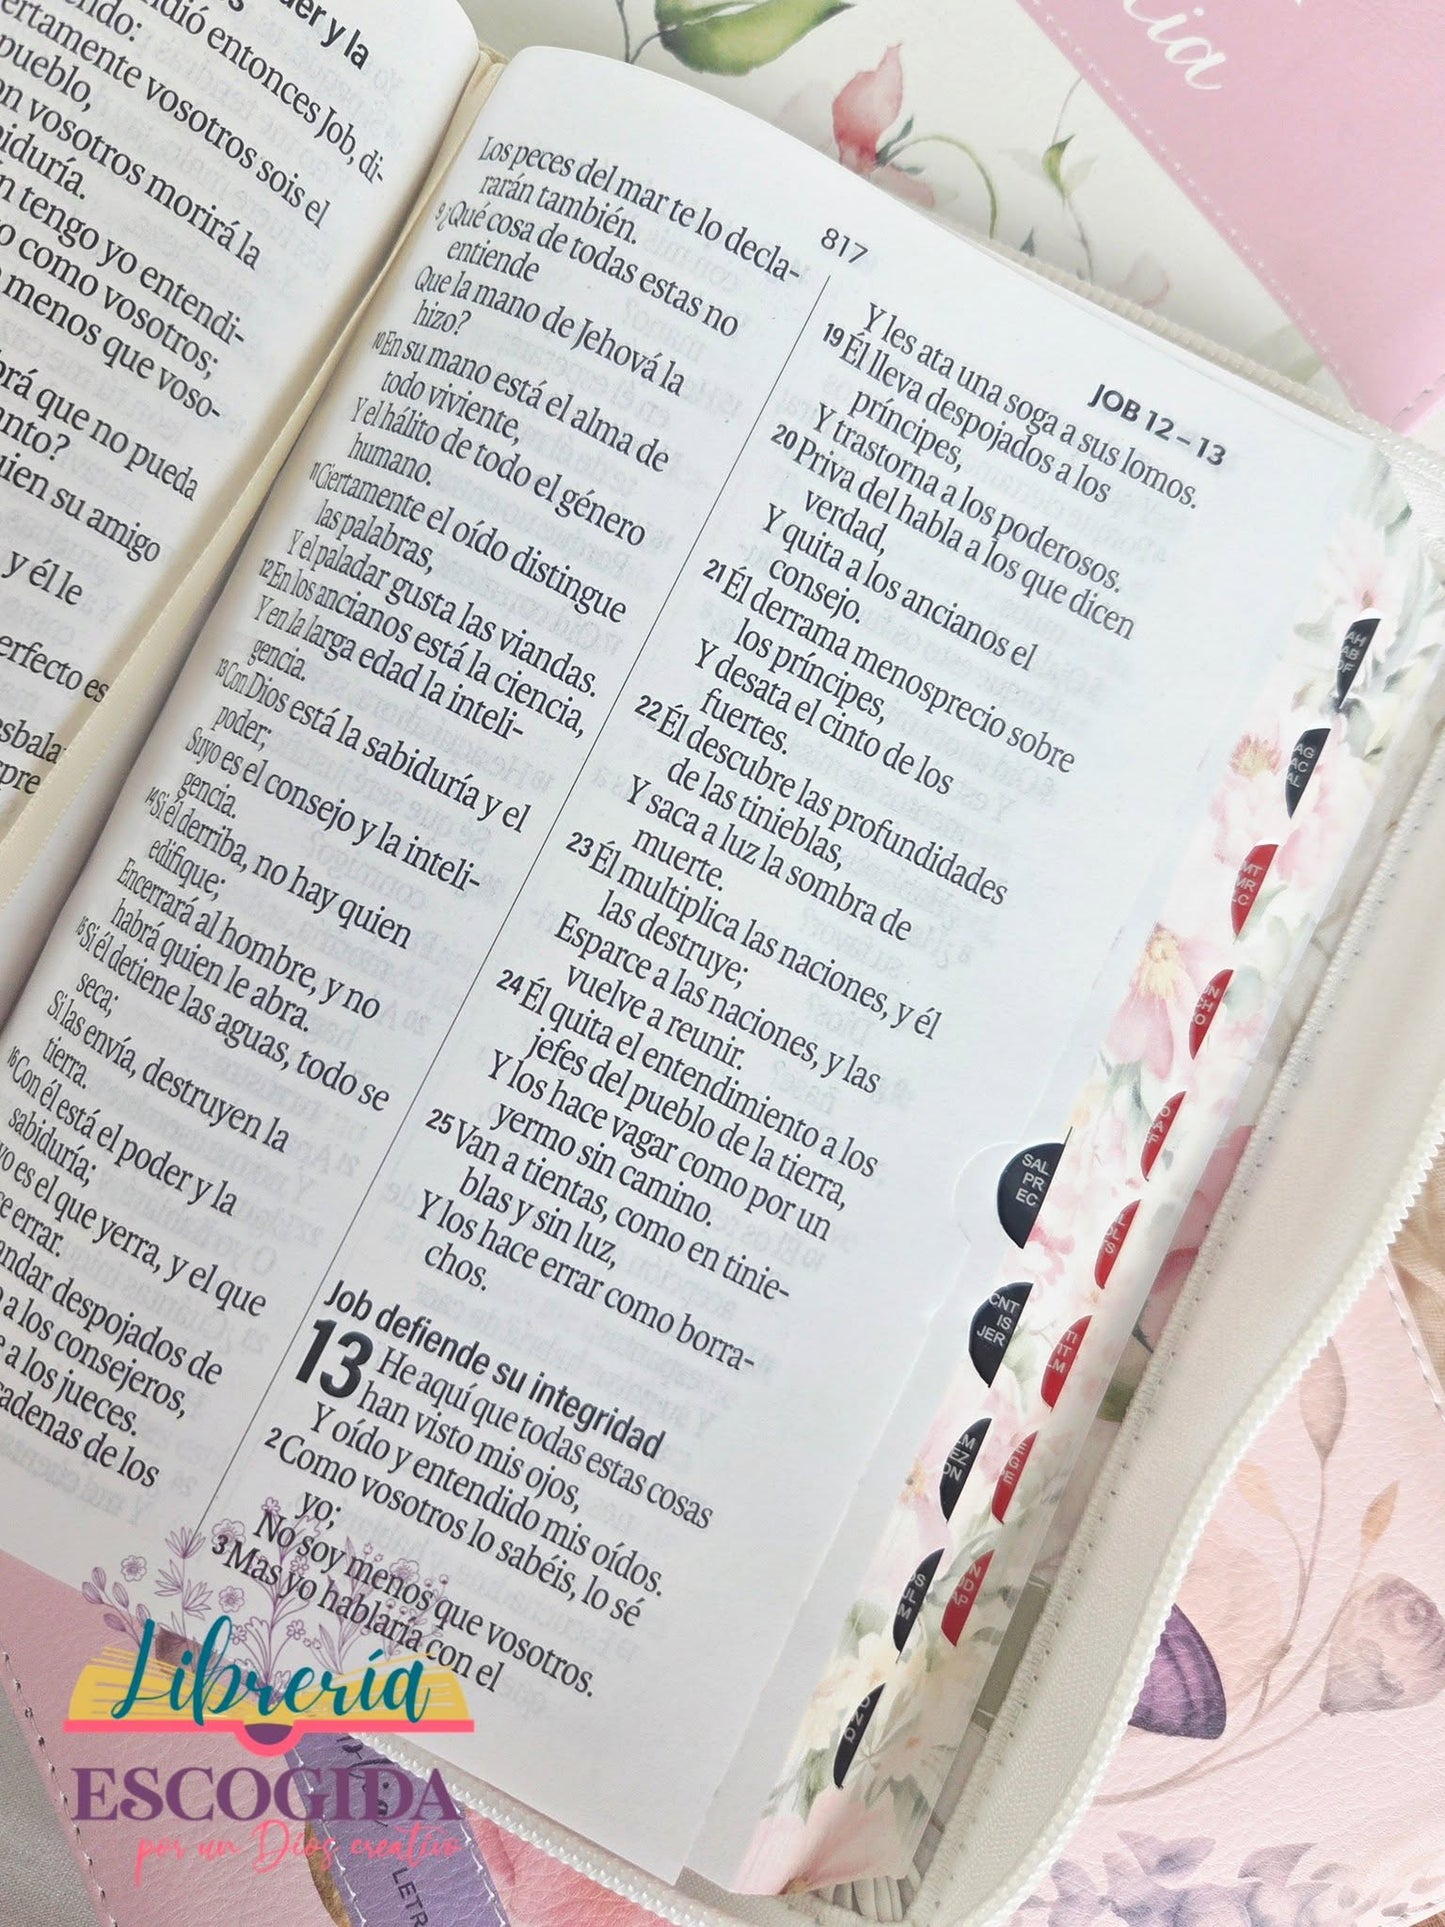 der y la
dió entonces Job, di-
endo:
ertamente vosotros sois el
pueblo,
on vosotros morirá la
iduría.
n tengo yo entendi-
o como vosotros;
menos que voso-
rá que no pueda
anto?
uien su amigo
y él le
erfecto es
sbala
pre
817
JOB 12–13
Los peces del mar te lo decla-
rarán también.
9 ¿Qué cosa de todas estas no
entiende
Que la mano de Jehová la
hizo?
10 En su mano está el alma de
todo viviente,
Y el hálito de todo el género
humano.
11 Ciertamente el oído distingue
las palabras,
Y el paladar gusta las viandas.
12 En los ancianos está la ciencia,
Y en la larga edad la inteli-
gencia.
13 Con Dios está la sabiduría y el
poder;
Suyo es el consejo y la inteli-
gencia.
14 Si él derriba, no hay quien
edifique;
Encerrará al hombre, y no
habrá quien le abra.
15 Si él detiene las aguas, todo se
seca;
Si las envía, destruyen la
tierra.
16 Con él está el poder y la
sabiduría;
yo es el que yerra, y el que
ce errar.
andar despojados de
a los consejeros,
e a los jueces.
cadenas de los
Y les ata una soga a sus lomos.
19 Él lleva despojados a los
príncipes,
Y trastorna a los poderosos.
20 Priva del habla a los que dicen
verdad,
Y quita a los ancianos el
consejo.
21 Él derrama menosprecio sobre
los príncipes,
Y desata el cinto de los
fuertes.
22 Él descubre las profundidades
de las tinieblas,
Y saca a luz la sombra de
muerte.
23 Él multiplica las naciones, y él
las destruye;
Esparce a las naciones, y las
vuelve a reunir.
24 Él quita el entendimiento a los
jefes del pueblo de la tierra,
Y los hace vagar como por un
yermo sin camino.
25 Van a tientas, como en tinie-
blas y sin luz,
Y los hace errar como borra-
chos.
Job defiende su integridad
13 He aquí que todas estas cosas
han visto mis ojos,
Y oído y entendido mis oídos.
2 Como vosotros lo sabéis, lo sé
yo;
No soy menos que vosotros.
3 Mas yo hablaría con el
SAL
PR
EC
CNT
IS
JER
Librería
ESCOGIDA
por un Dios creativo
LETR